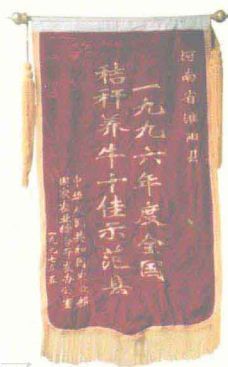 河南省淮阳县
一九九六年度全国
秸秆养牛十佳示范县
中华人民共和国农业部
国家农业综合开发办公室
一九九七年五